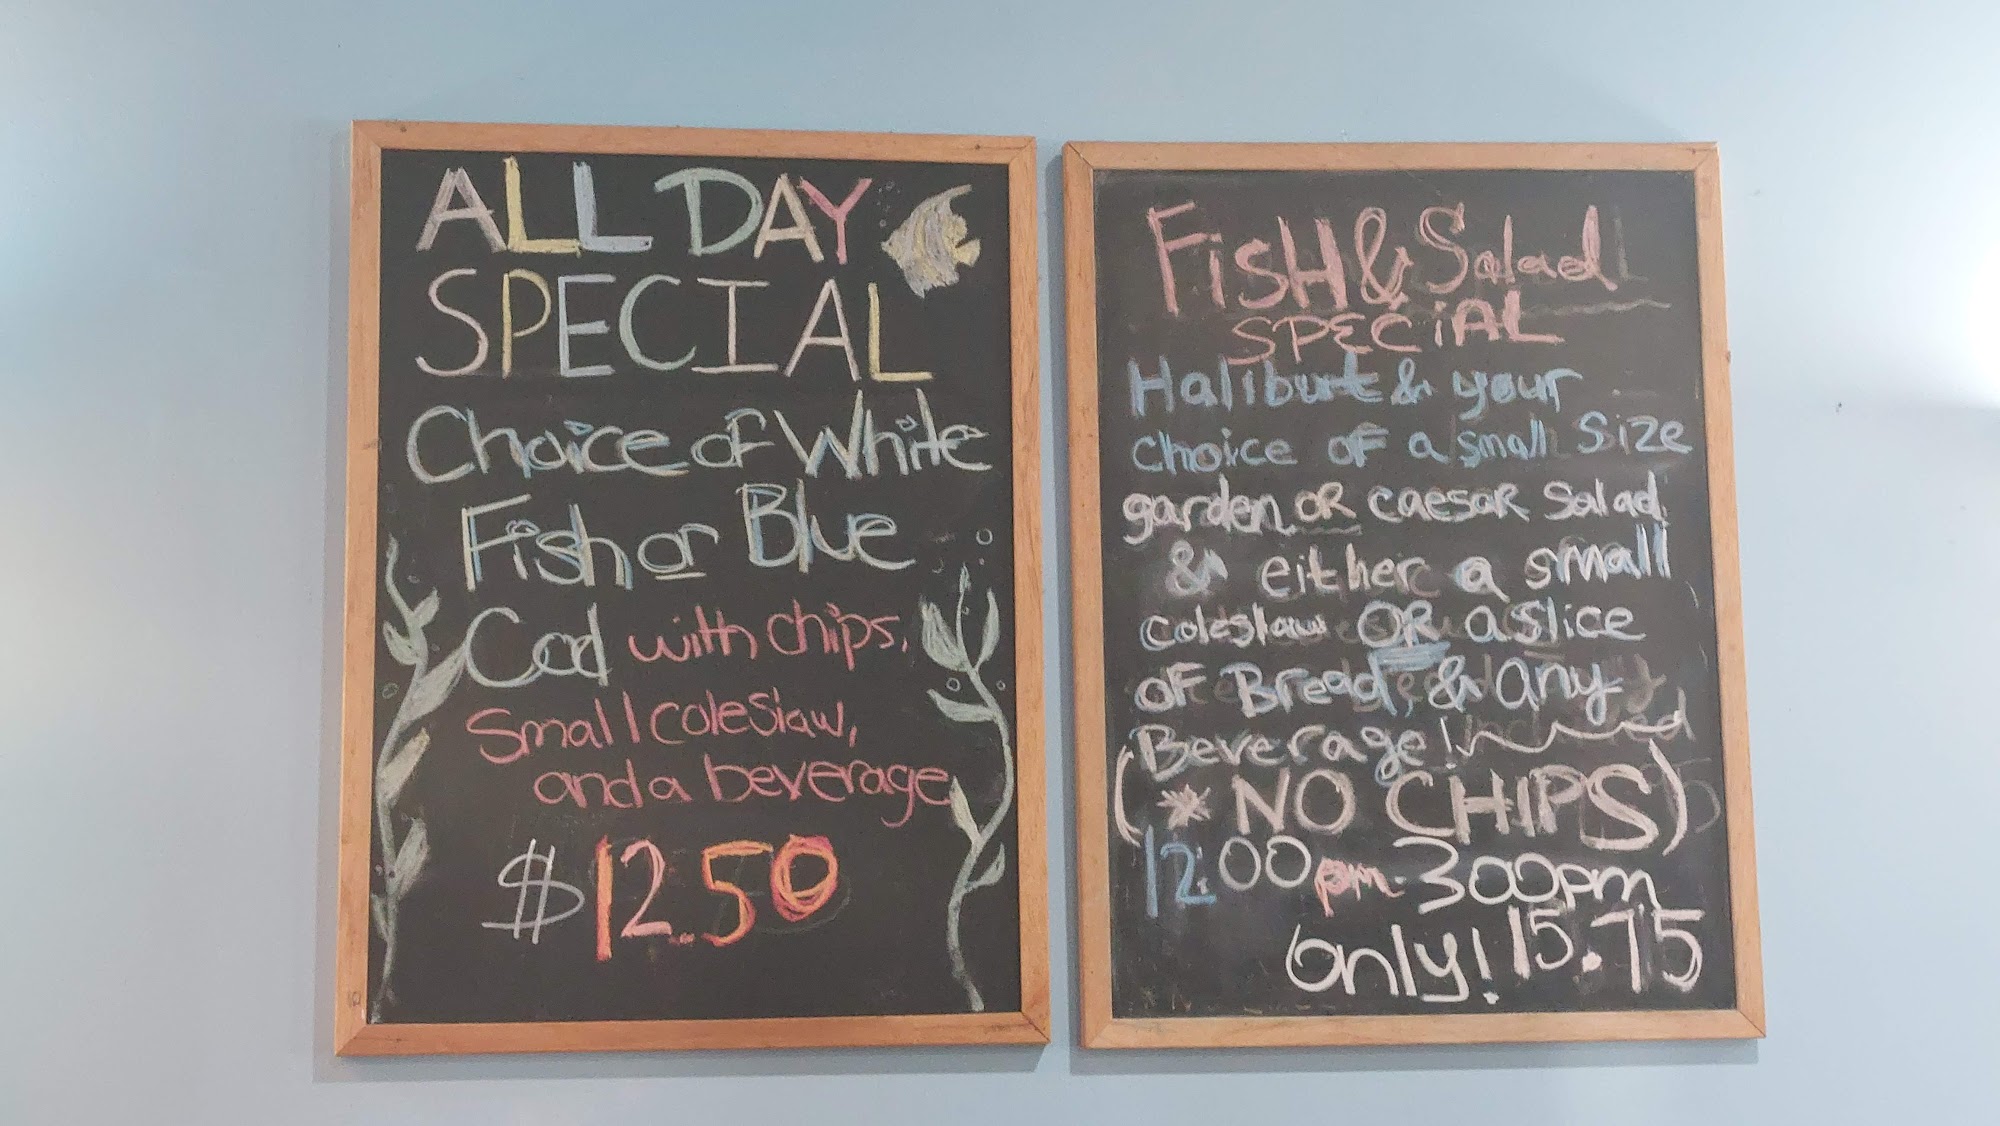 ALL DAY
SPECIAL
Choice of White
Fish or Blue
Cod with chips,
Small coleslaw,
and a beverage
$12.50
FiSH & Salad
SPECiAL
Haliburt & your
choice of a small size
garden OR caesar salad
& either a small
coleslaw OR a slice
of Bread, & any
Beverage! included
(* NO CHIPS)
12:00pm-300pm
only! 15.75